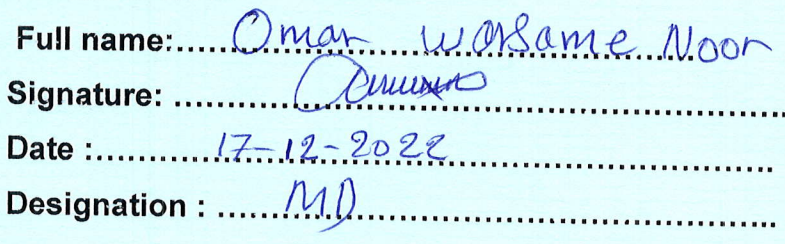 Full name: Omar Warsame Noor
Signature:
Date : 17-12-2022
Designation : MD